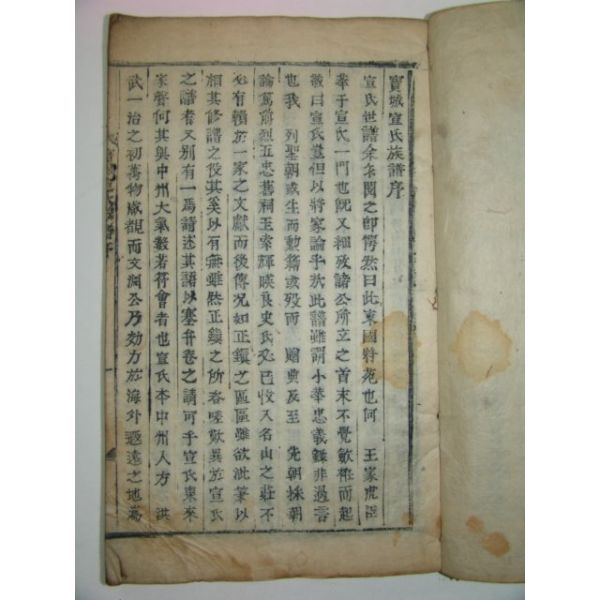 寶城宣氏族譜序
宣氏世譜余乍閱之卽愕然曰此東國將苑也何　王家虎臣
萃于宣氏一門也旣又細攷諸公所立之首末不覺斂袵而起
敬曰宣氏豈但以將家論乎哉此譜雖謂小華忠義錄非過言
也我　列聖朝或生而勳籍或歿而　贈典及至　先朝採朝
論篤前烈五忠舊祠王章輝暎良史氏必已收入名山之莊不
必有賴於一家之文獻而後傳況如正鎭之區區雖欲泚筆以
相其修譜之役其奚以有無雖然正鎭之所呑嗟歎異於宣氏
之譜者又別有一焉請述其語以塞弁卷之請可乎宣氏東來
家聲何其與中州大氣數若符會者也宣氏本中州人方　洪
武一治之初萬物咸覩而文潤公乃効力於海外遐遠之地爲